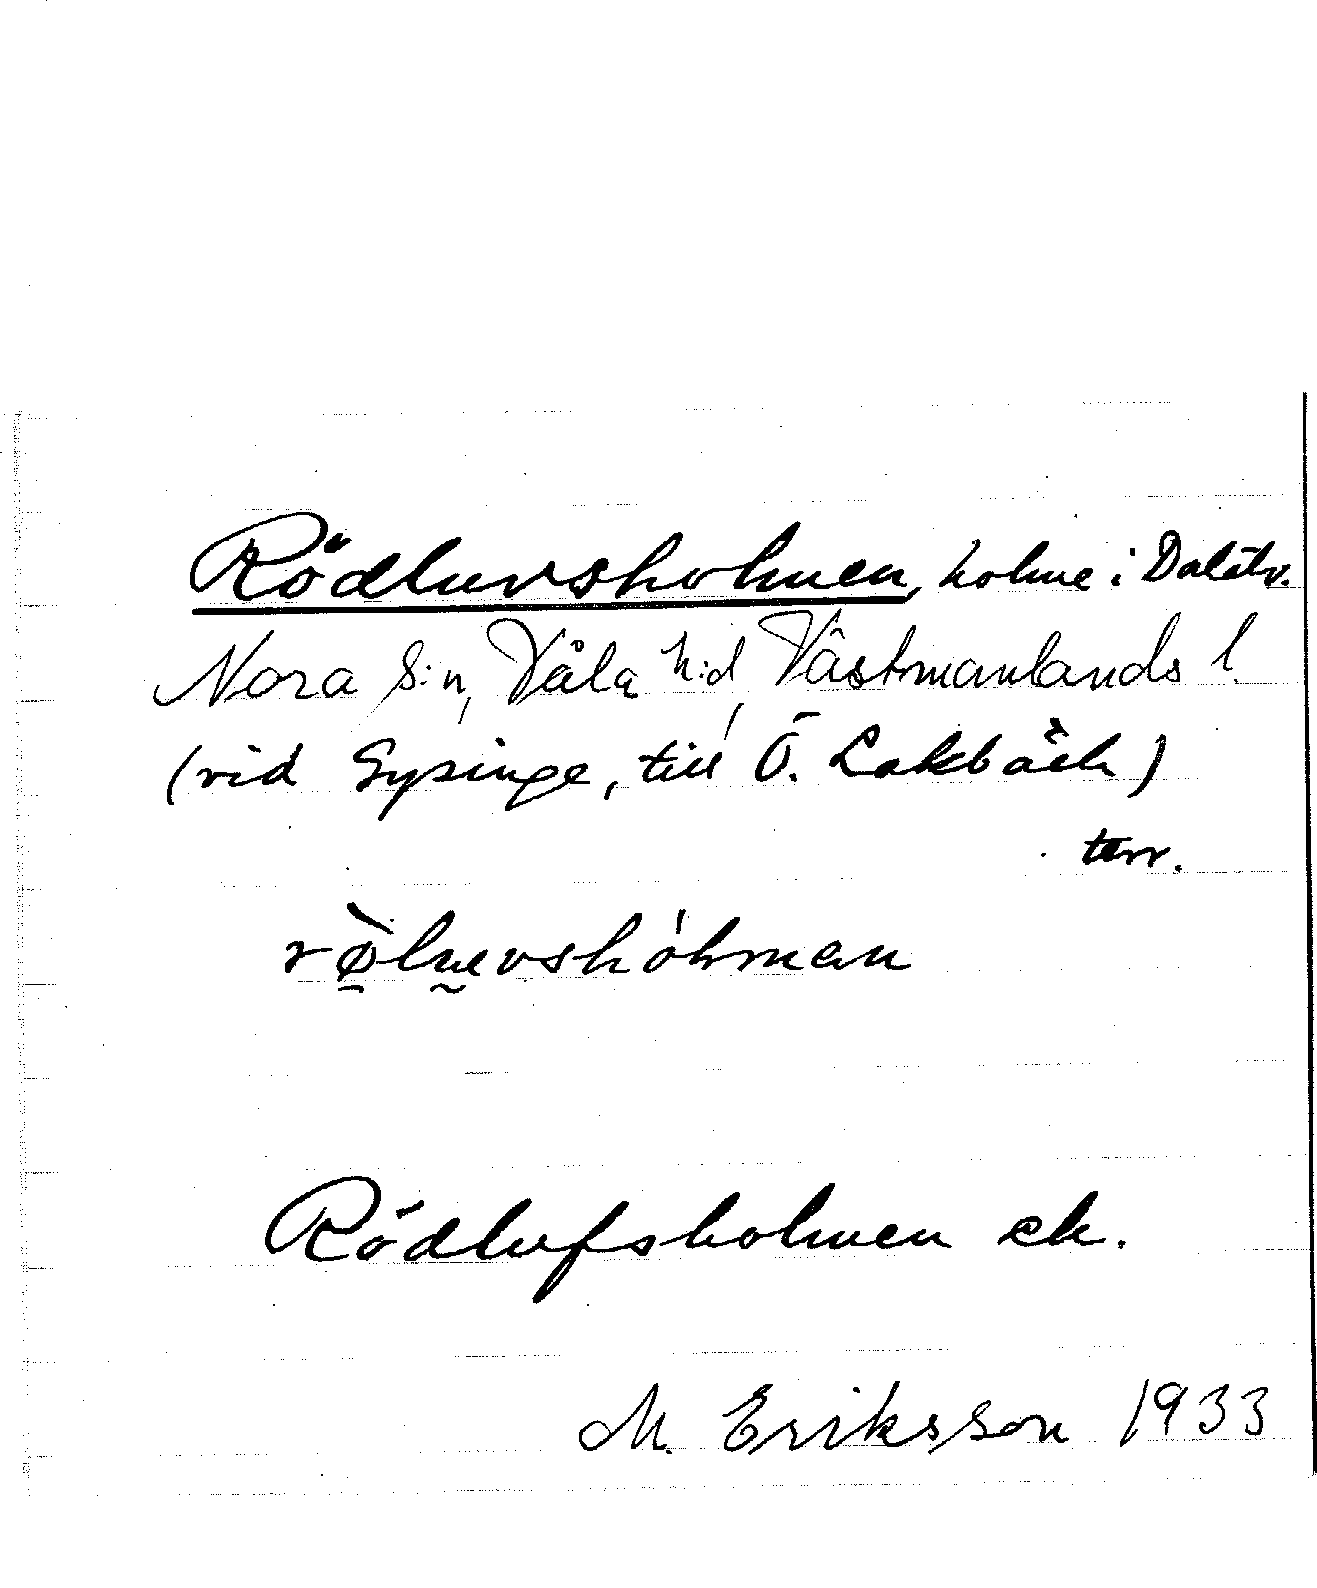 Rödluvsholmen, holme i Dalälv.
Nora s:n, Våla h:d, Västmanlands l.
(vid Gysinge, till Ö. Lakbäck)
terr.
Rödlufsholmen ek.
M. Eriksson 1933